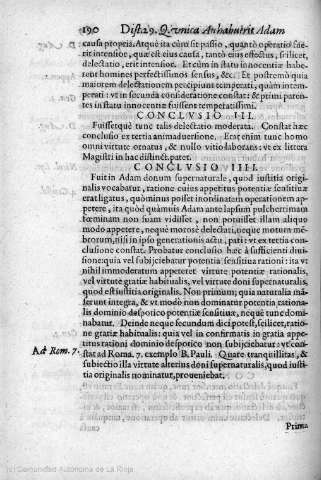 190 Dist. 29. Q. vnica An habuerit Adam
causa propria. Atque ita cùm sit passio, quantò operatio fue-
rit intensior, quæ est eius causa, tantò eius effectus, scilicet,
delectatio, erit intensior. Et cùm in statu innocentiæ habe-
rent homines perfectissimos sensus, &c. Et postremò quia
maiorem delectationem percipiunt temperati, quàm intem-
perati: vt in secunda consideratione constat: & primi paren-
tes in statu innocentiæ fuissent temperatissimi.
CONCLVSIO III.
Fuissetque tunc talis delectatio moderata. Constat hæc
conclusio ex tertia animaduersione. Erat etiam tunc homo
omni virtute ornatus, & nullo vitio laborans: vt ex littera
Magistri in hac distinct. patet.
CONCLVSIO IIII.
Fuit in Adam donum supernaturale, quod iustitia origi-
nalis vocabatur, ratione cuius appetitus potentiæ sensitiuæ
erat ligatus, quominus posset inordinatam operationem ap-
petere, ita quòd quamuis Adam ante lapsum pulcherrimam
fœminam non suam vidisset, non potuisset illam aliquo
modo appetere, neque morosè delectari, neque motum mē-
brorum, nisi in ipso generationis actu, pati: vt ex tertia con-
clusione constat. Probatur conclusio hæc à sufficienti diui-
sione: quia vel subijciebatur potentia sensitiua rationi: ita vt
nihil immoderatum appeteret virtute potentiæ rationalis,
vel virtute gratiæ habitualis, vel virtute doni supernaturalis,
quod est iustitia originalis. Non primum; quia naturalia mā-
serunt integra, & vt modò non dominatur potentia rationa-
lis dominio despotico potentiæ sensitiuæ, neque tunc domi-
nabatur. Deinde neque secundum dici potest, scilicet, ratio-
ne gratiæ habitualis: quia vel in confirmatis in gratia appe-
titus rationi dominio despotico non subijciebatur: vt con-
Ad Rom. 7. stat ad Roma. 7. exemplo B. Pauli. Quare tranquillitas, &
subiectio illa virtute alterius doni supernaturalis, quod iusti-
tia originalis nominatur, proueniebat.
Prima
(c) Comunidad Autónoma de La Rioja